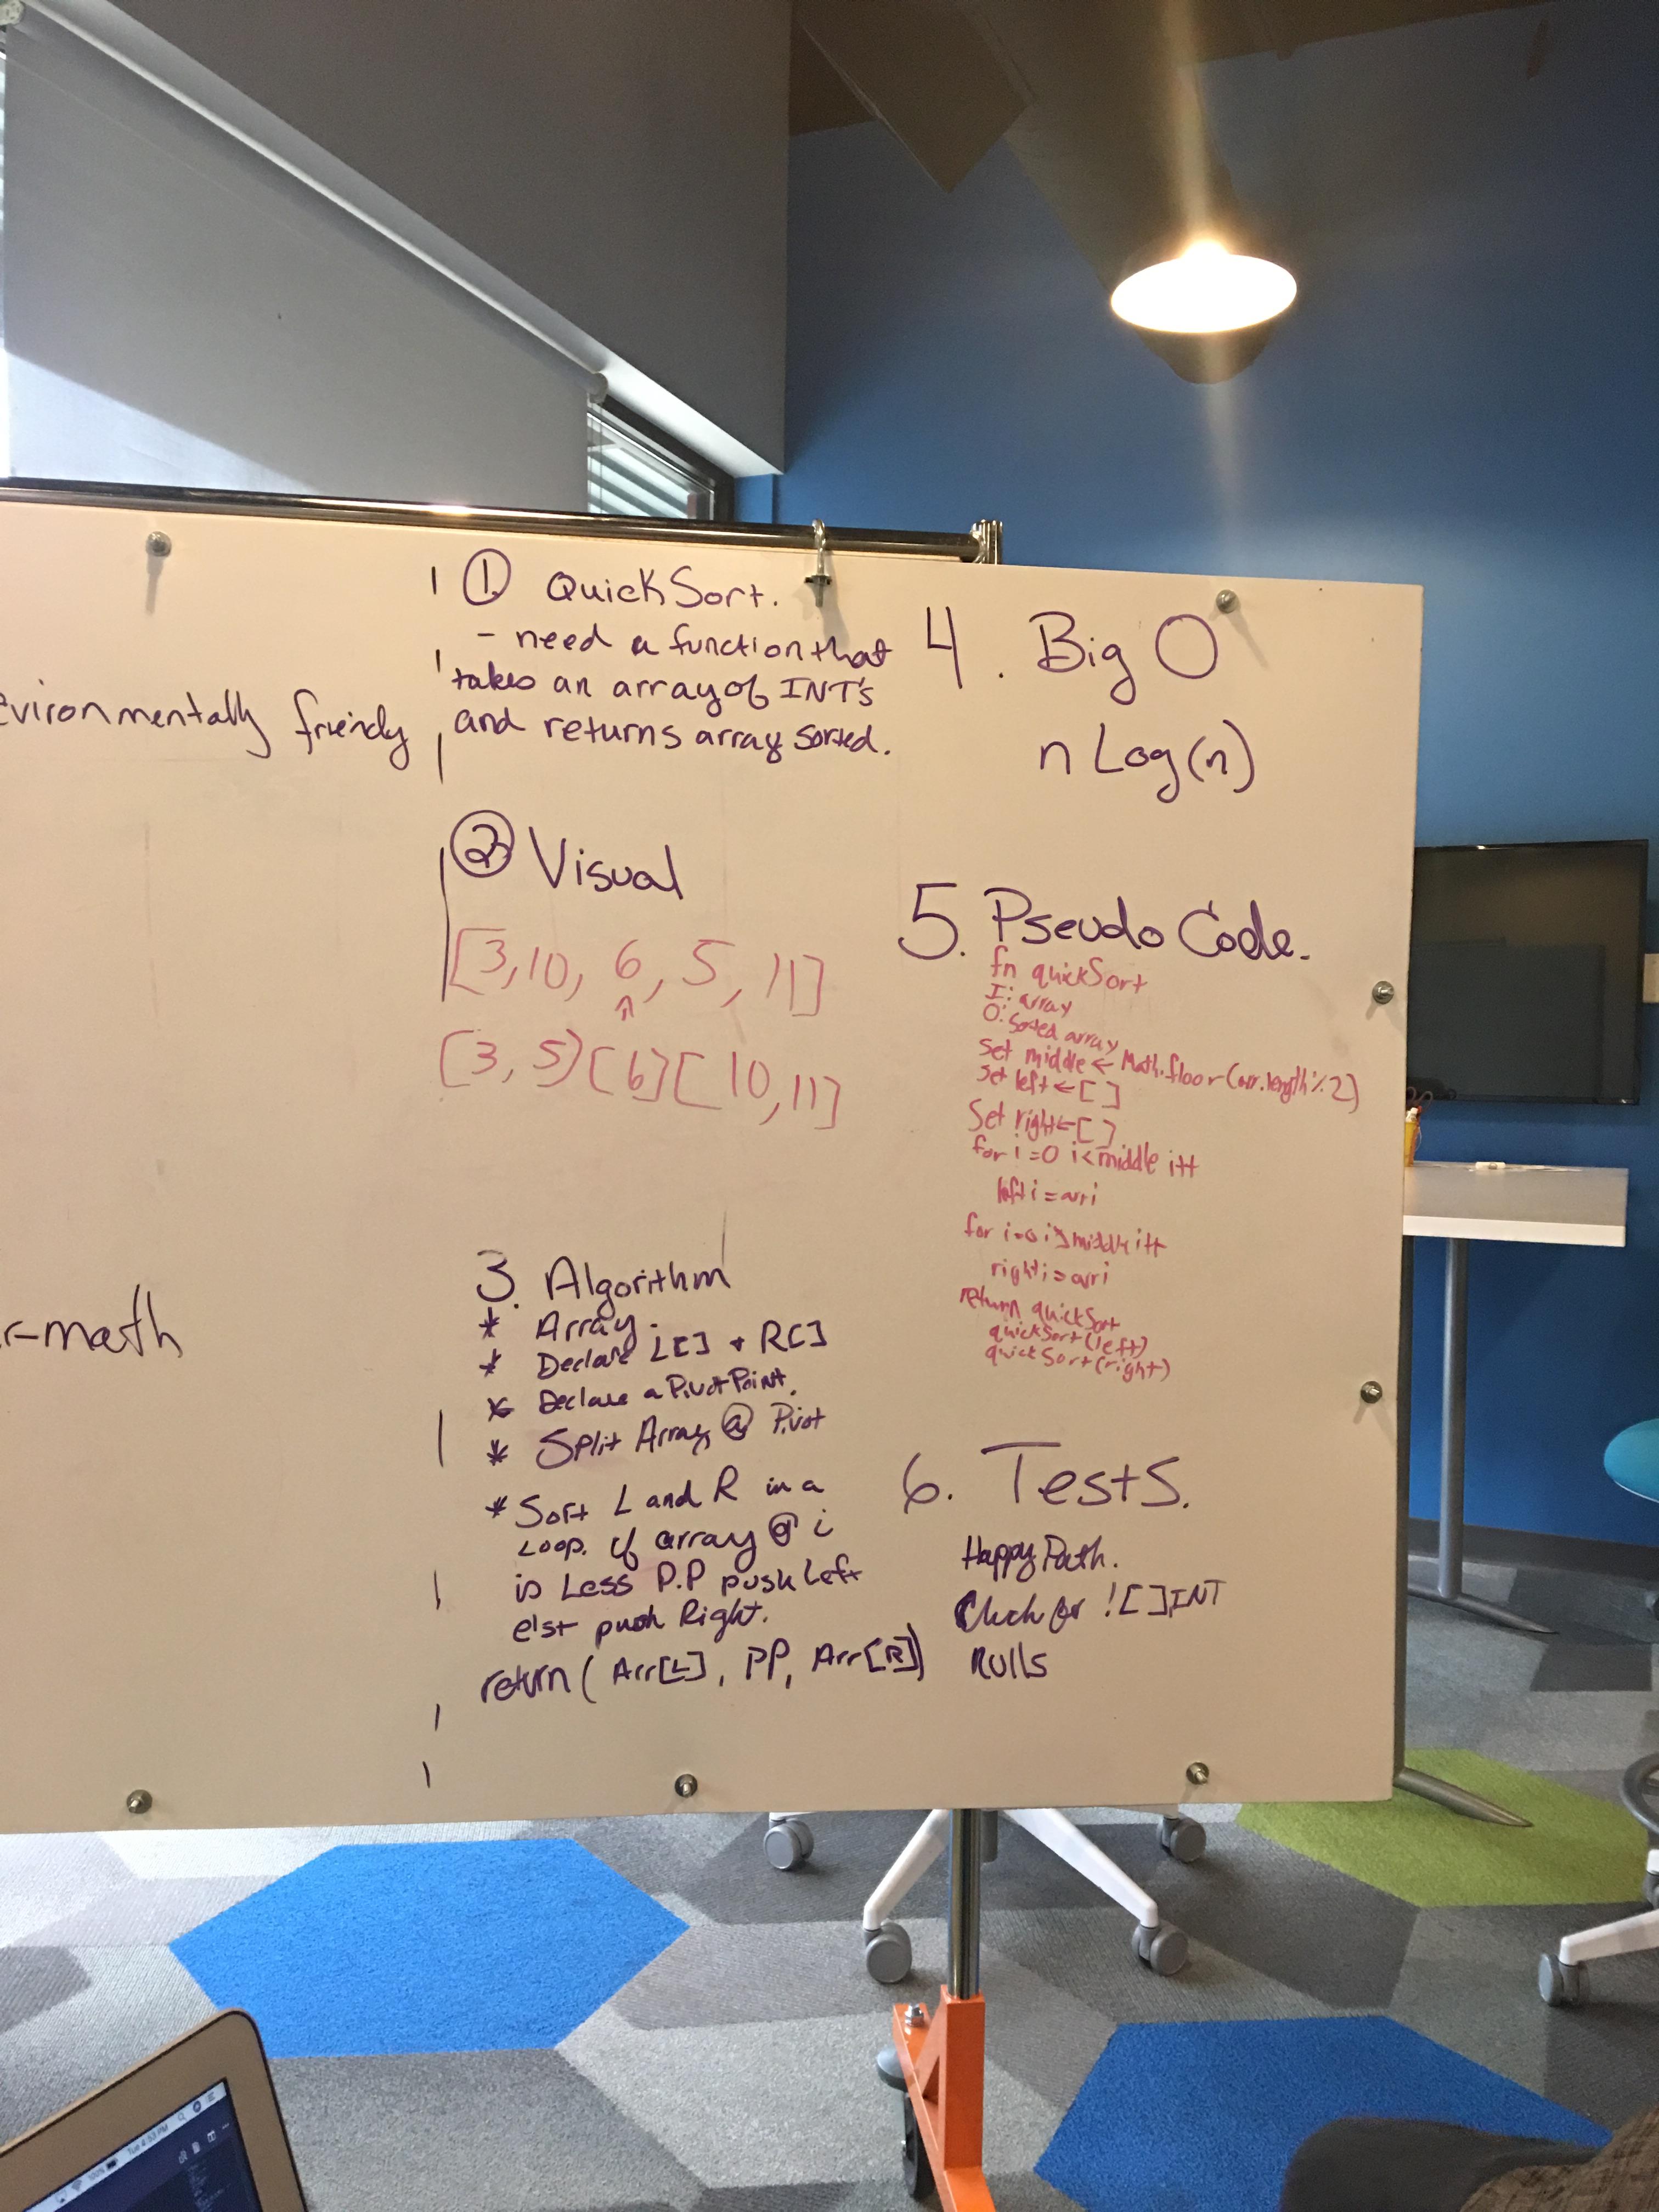 evironmentally friendly
r-math
1. QuickSort.
- need a function that
takes an array of INT's
and returns array sorted.
2 Visual
[3,10, 6, 5, 11]
[3, 5][6][10,11]
3. Algorithm
* Array.
* Declare L[] + R[]
* Declare a PivotPoint.
* Split Array @ Pivot
* Sort L and R in a
Loop. if array @ i
is Less P.P push Left
else push Right.
return (Arr[L], PP, Arr[R])
4. Big O
n Log(n)
5. Pseudo Code.
fn quickSort
I: array
O: Sorted array
Set middle ← Math.floor(arr.length % 2)
Set left ← []
Set right ← []
for i=0 i<middle i++
left i = arr i
for i=0 i>middle i++
right i = arr i
return quickSort
quickSort(left)
quickSort(right)
6. Tests.
Happy Path.
Check for ![]INT
Nulls
Tue 4:53 PM